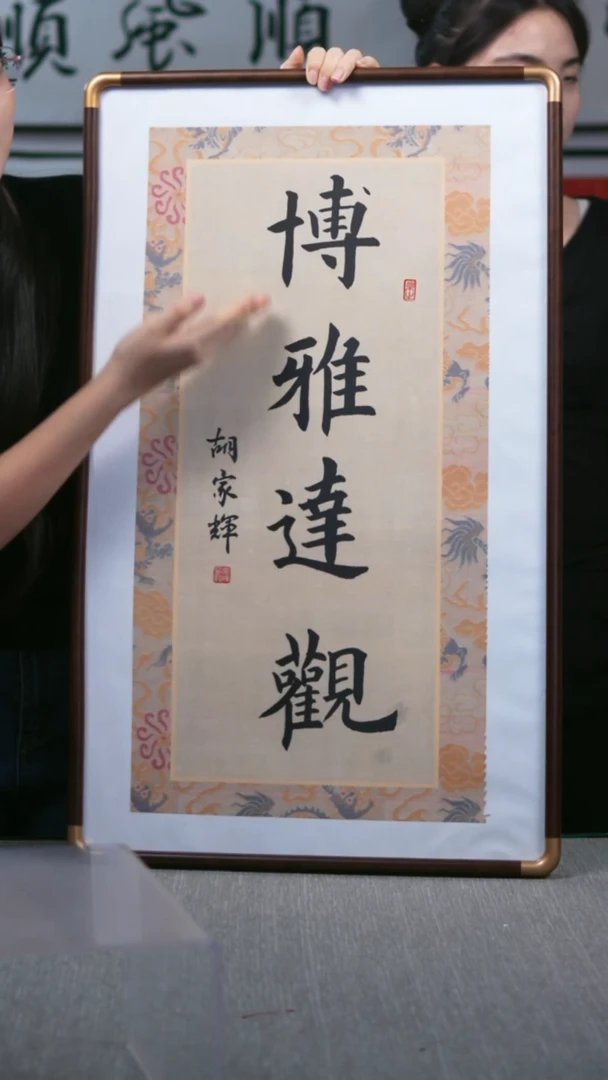 博雅達觀
胡家輝
順風順